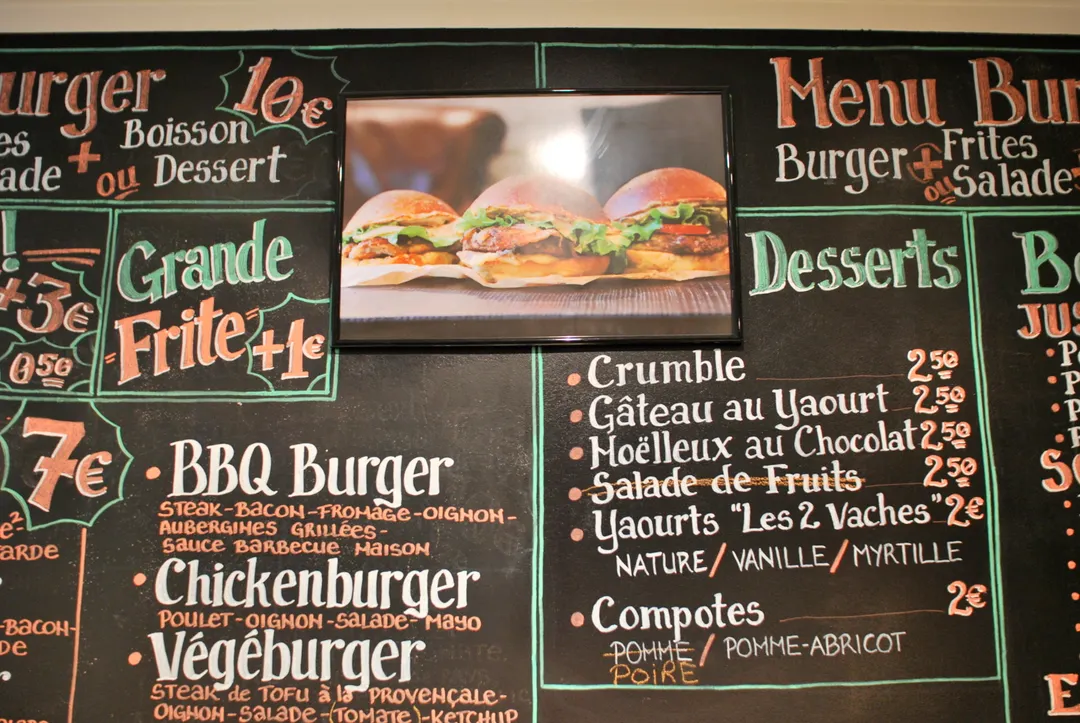 urger 10€
es
Boisson
ade + ou Dessert
+3€
0,50
Grande
Frite +1€
7€
BBQ Burger
STEAK-BACON-FROMAGE-OIGNON-
AUBERGINES GRILLÉES-
SAUCE BARBECUE MAISON
Chickenburger
POULET-OIGNON-SALADE-MAYO
Végéburger
STEAK de TOFU à la PROVENÇALE-
OIGNON-SALADE-(TOMATE)-KETCHUP
ARDE
-BACON-
DE
Menu Bur
Burger + Frites
ou Salade
Desserts
Crumble 2,50
Gâteau au Yaourt 2,50
Moëlleux au Chocolat 2,50
Salade de Fruits 2,50
Yaourts "Les 2 Vaches" 2€
NATURE / VANILLE / MYRTILLE
Compotes 2€
POMME / POMME-ABRICOT
POIRE
JUS